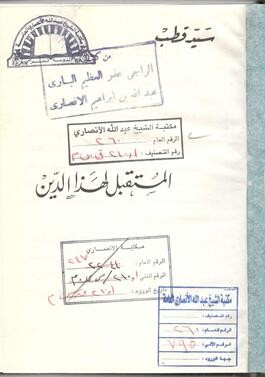 سيد قطب
من كتب
الراجي عفو العظيم الباري
عبد الله بن ابراهيم الانصاري
مكتبة الشيخ عبد الله الأنصاري
الرقم العام : ٢٦٠
رقم التصنيف :
المستقبل لهذا الدين
مكتبة الانصاري
الرقم العام :
الرقم الفني
تاريخ الورود :
مكتبة الشيخ عبد الله الأنصاري العامة
رقم التصنيف :
الرقم العام : ٢٦٠
الرقم الآلي : ٧٩٥
جهة الورود :